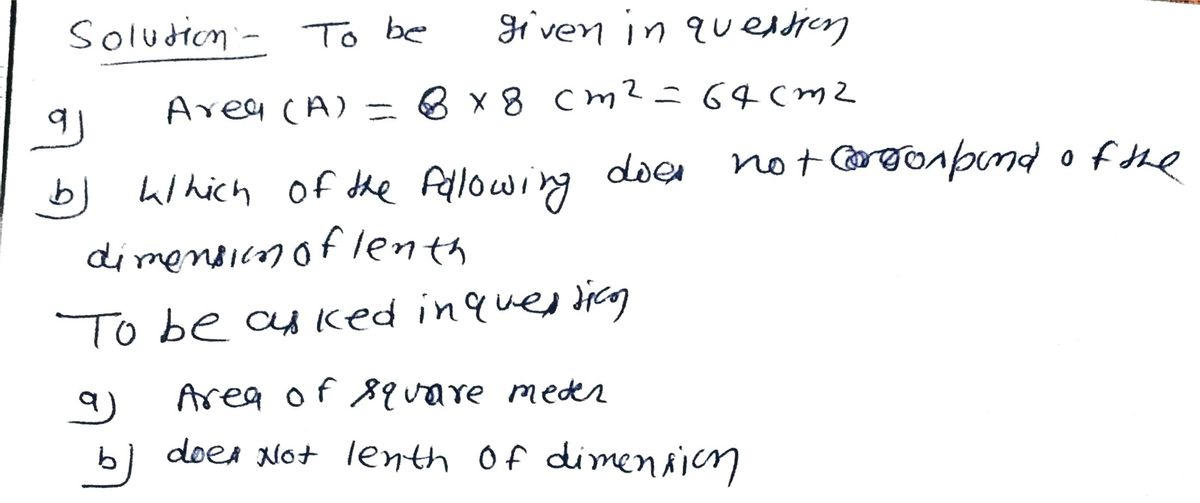 Solution:- To be given in question
a) Area (A) = 8 x 8 cm2 = 64 cm2
b) Which of the following does not of the
dimension of lenth
To be asked in question
a) Area of square meter
b) does Not lenth of dimension